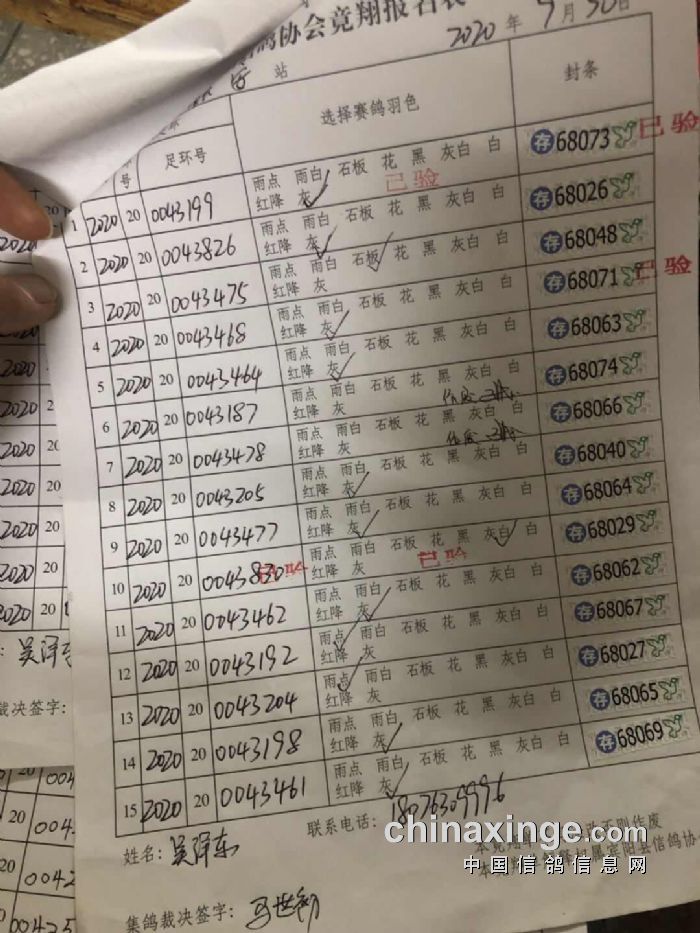 鸽协会竞翔报名表
2020 年 9月30日
站
号 足环号 选择赛鸽羽色 封条
1 2020 20 0043199 雨点 雨白 石板 花 黑 灰白 白 红降 灰 ✓ 已验 存68073 已验
2 2020 20 0043826 雨点 雨白 石板 花 黑 灰白 白 红降 灰 ✓ 存68026
3 2020 20 0043475 雨点 雨白 石板 ✓ 花 黑 灰白 白 红降 灰 存68048
4 2020 20 0043468 雨点 雨白 石板 花 黑 灰白 白 红降 灰 ✓ 存68071 已验
5 2020 20 0043464 雨点 雨白 石板 花 黑 灰白 白 红降 灰 ✓ 存68063
6 2020 20 0043187 雨点 雨白 石板 花 黑 灰白 白 红降 灰 存68074
7 2020 20 0043478 雨点 雨白 石板 花 黑 灰白 白 红降 灰 存68066
8 2020 20 0043205 雨点 雨白 石板 花 黑 灰白 白 红降 灰 ✓ 存68040
9 2020 20 0043477 雨点 雨白 石板 花 黑 灰白 白 红降 灰 ✓ 存68064
10 2020 20 0043830 已验 雨点 雨白 石板 花 黑 灰白 ✓ 白 红降 灰 已验 存68029
11 2020 20 0043462 雨点 雨白 石板 花 黑 灰白 白 红降 灰 ✓ 存68062
12 2020 20 0043192 雨点 ✓ 雨白 石板 花 黑 灰白 白 红降 灰 存68067
13 2020 20 0043204 雨点 ✓ 雨白 石板 花 黑 灰白 白 红降 灰 存68027
14 2020 20 0043198 雨点 雨白 石板 花 黑 灰白 白 红降 灰 ✓ 存68065
15 2020 20 0043461 雨点 雨白 石板 花 黑 灰白 白 红降 灰 ✓ 存68069
姓名: 吴泽东 联系电话: 18076309996
否则作废
属宾阳县信鸽协
集鸽裁决签字:
chinaxinge.com
中国信鸽信息网
吴泽东
裁决签字: